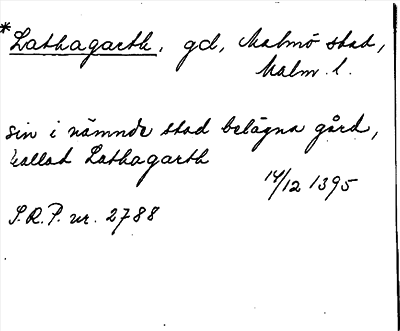 *Lathagarth, gd, Malmö stad,
Malm. l.
sin i nämnde stad belägna gård,
kallad Lathagarth
14/12 1395
S.R.P. nr. 2788